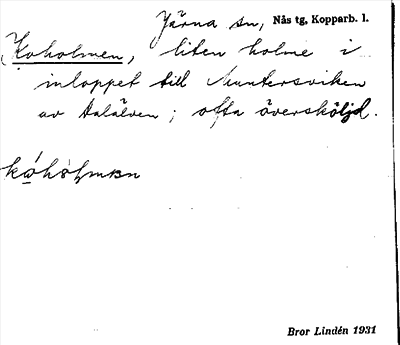 Järna sn, Nås tg, Kopparb. l.
Koholmen, liten holme i
inloppet till Muntersviken
av Dalälven; ofta översköljd.
Bror Lindén 1931